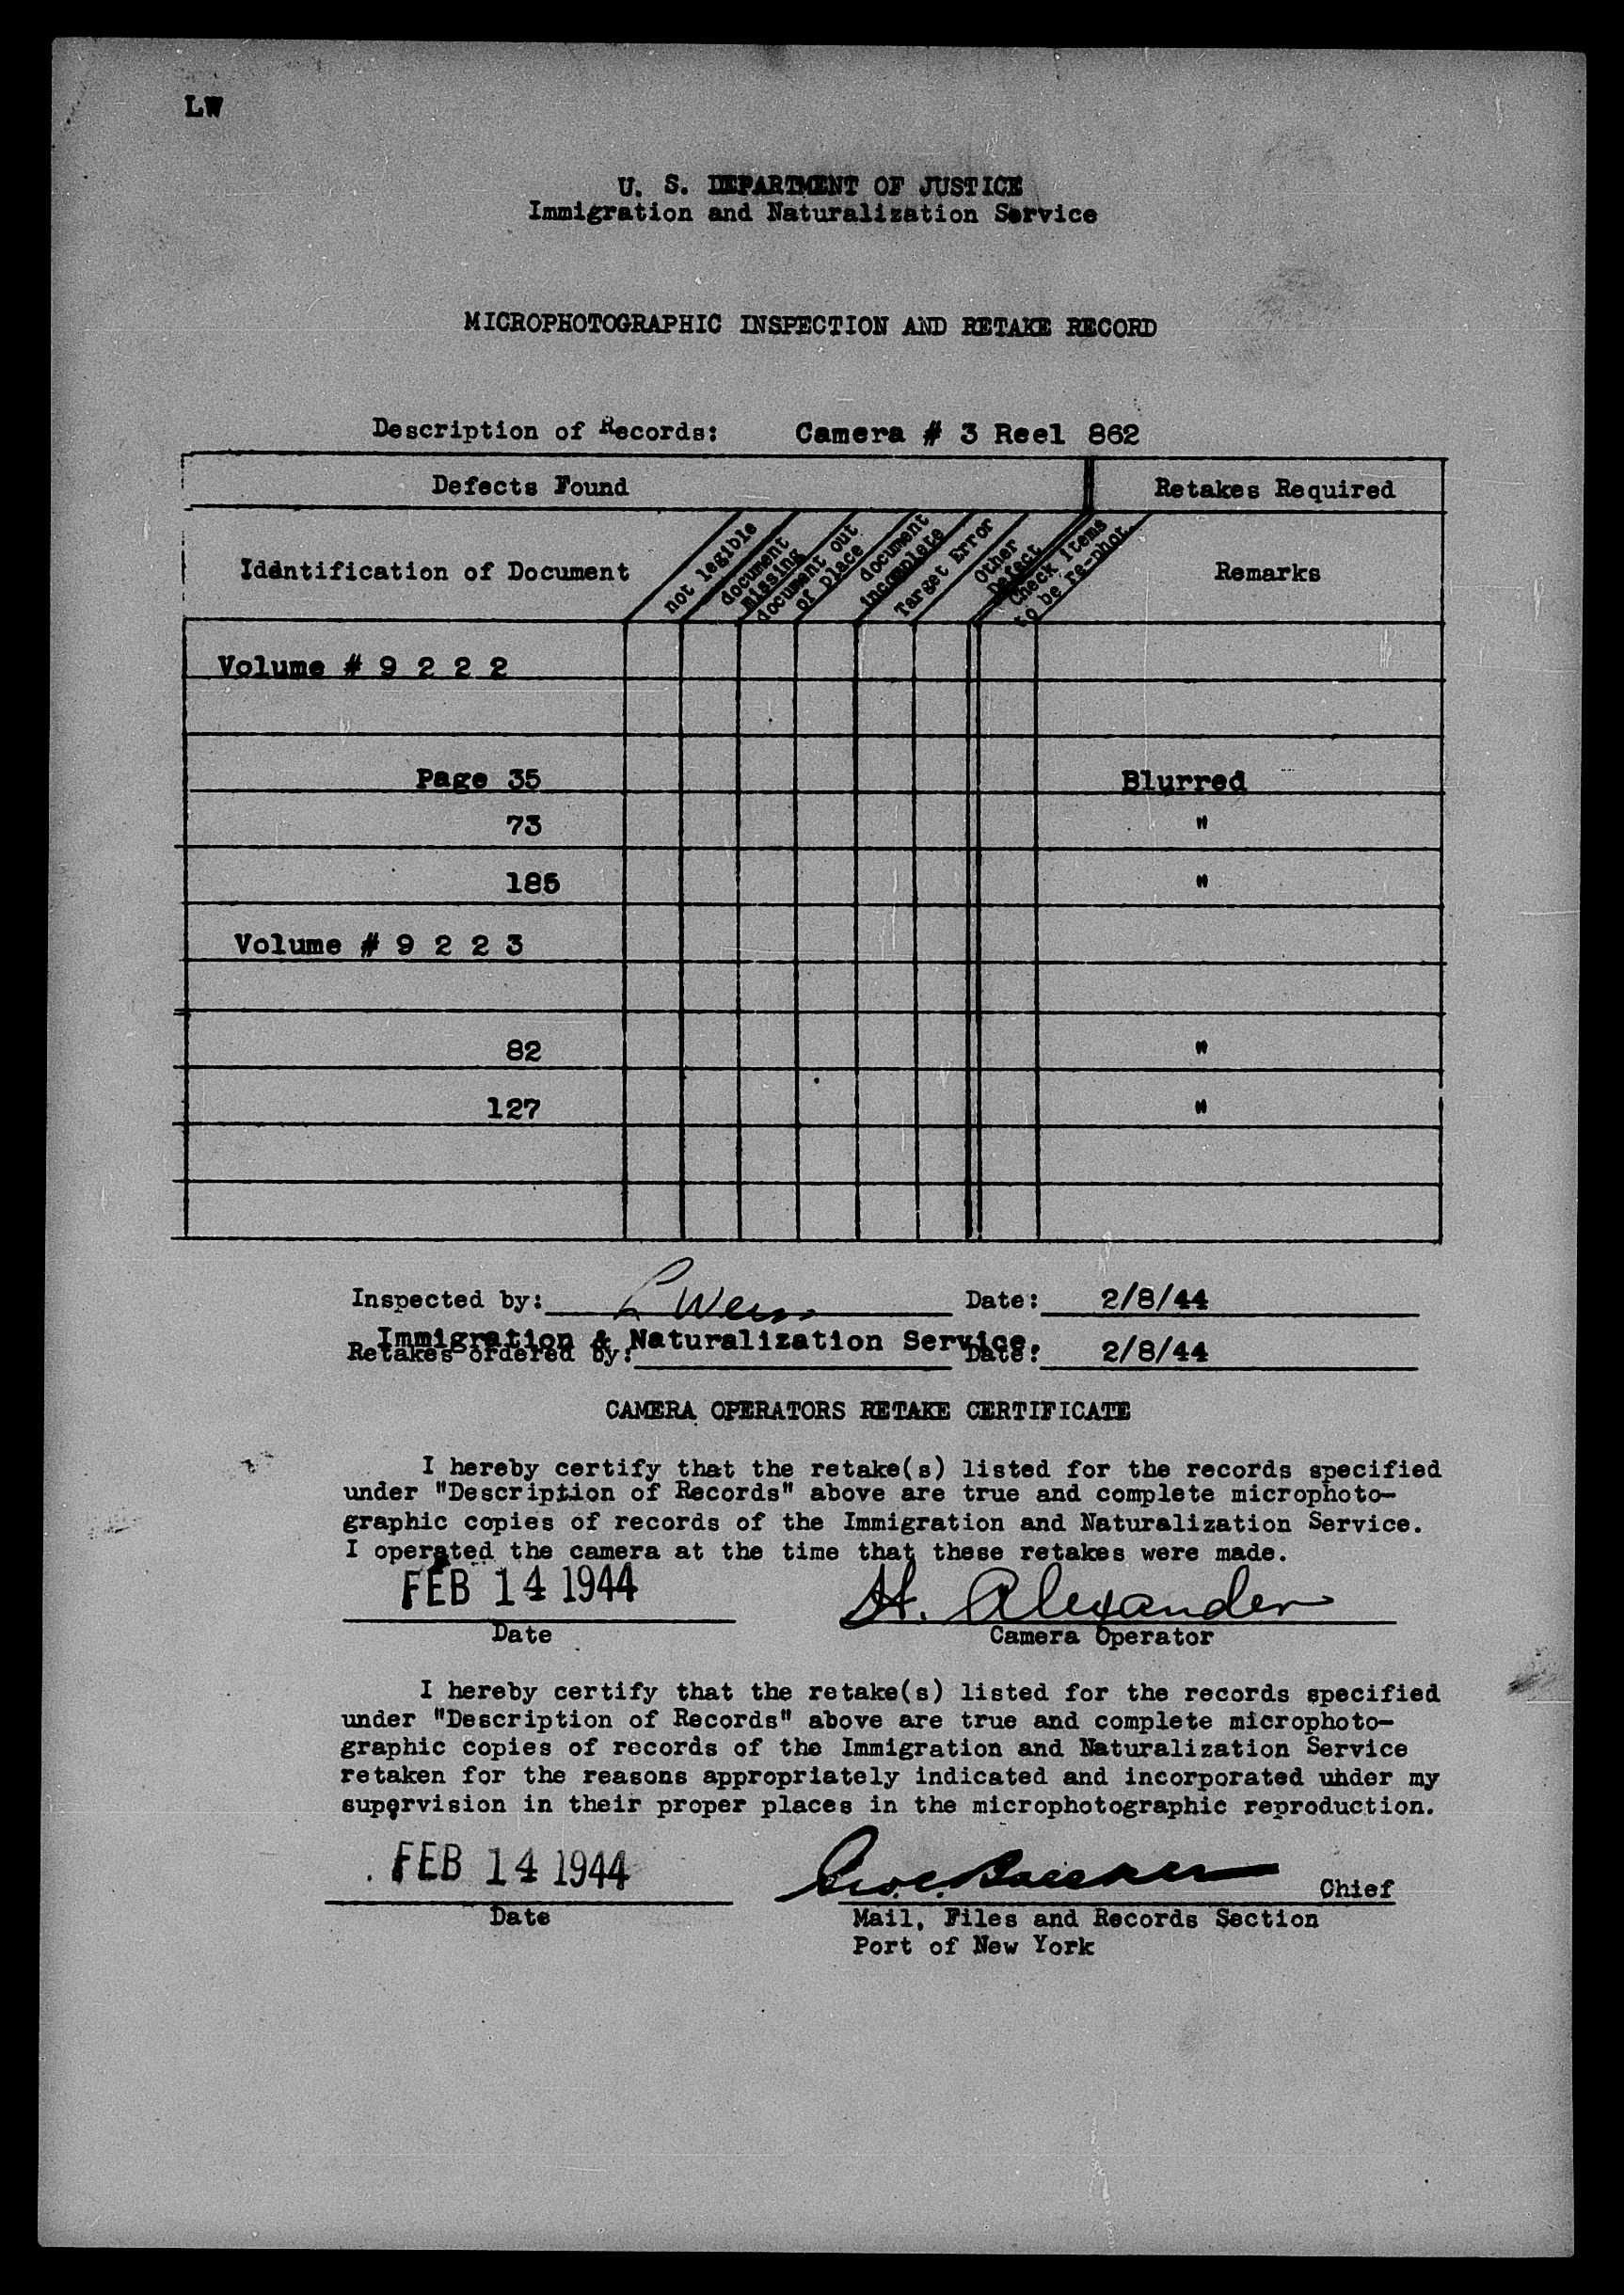 LW
U. S. DEPARTMENT OF JUSTICE
Immigration and Naturalization Service
MICROPHOTOGRAPHIC INSPECTION AND RETAKE RECORD
Description of Records: Camera # 3 Reel 862
Defects Found
Retakes Required
Idéntification of Document
not legible
document missing
document out of place
document incomplete
Target Error
Other Defect
Check items to be re-phot.
Remarks
Volume # 9 2 2 2
Page 35 Blurred
73 "
185 "
Volume # 9 2 2 3
82 "
127 "
Inspected by: L Weiss Date: 2/8/44
Immigration & Naturalization Service.
Retakes ordered by: Date: 2/8/44
CAMERA OPERATORS RETAKE CERTIFICATE
I hereby certify that the retake(s) listed for the records specified
under "Description of Records" above are true and complete microphoto-
graphic copies of records of the Immigration and Naturalization Service.
I operated the camera at the time that these retakes were made.
FEB 14 1944 H. Alexander
Date Camera Operator
I hereby certify that the retake(s) listed for the records specified
under "Description of Records" above are true and complete microphoto-
graphic copies of records of the Immigration and Naturalization Service
retaken for the reasons appropriately indicated and incorporated under my
supervision in their proper places in the microphotographic reproduction.
FEB 14 1944 Chief
Date Mail, Files and Records Section
Port of New York